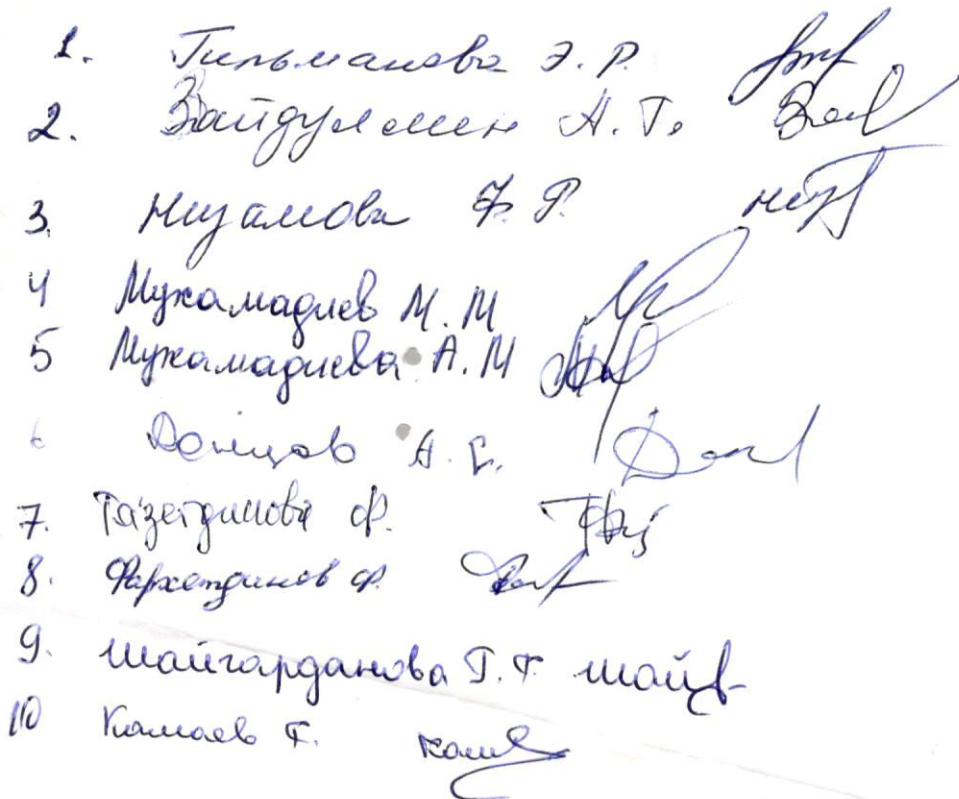 1. Гильманова Э. Р.
2. Зайдуллин А. Г.
3. Низамова Ф. Р.
4 Мухамадиев М. М
5 Мухамадиева А. М
6 Донцов А. Е.
7. Газетдинова Ф.
8. Фархетдинов Ф.
9. Шайгарданова Г. Г. Шай
10 Камаев Г. Кам